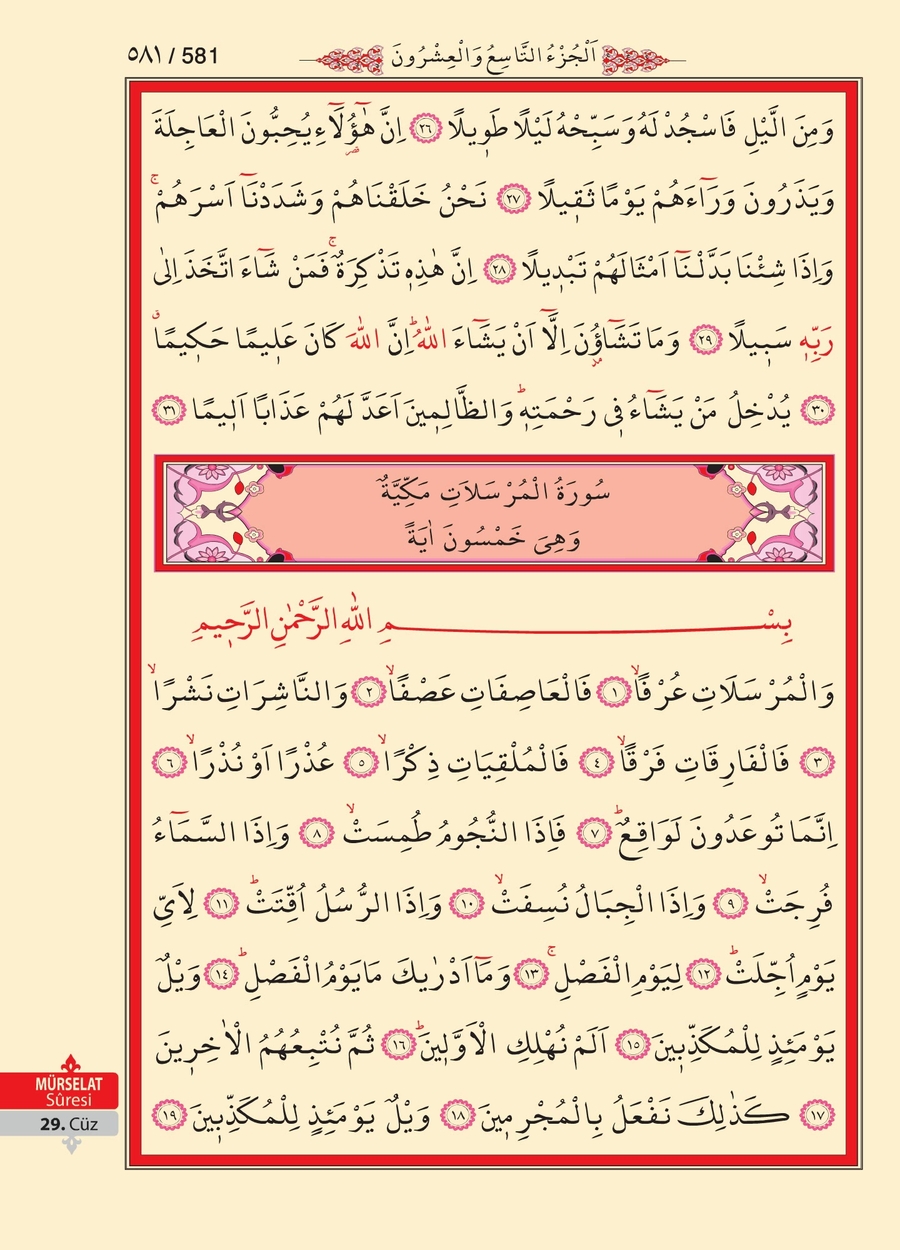 ٥٨١ / 581
اَلْجُزْءُ التَّاسِعُ وَالْعِشْرُونَ
وَمِنَ الَّيْلِ فَاسْجُدْ لَهُ وَسَبِّحْهُ لَيْلًا طَوٖيلًا ﴿٢٦﴾ اِنَّ هٰٓؤُ۬لَٓاءِ يُحِبُّونَ الْعَاجِلَةَ
وَيَذَرُونَ وَرَٓاءَهُمْ يَوْمًا ثَقٖيلًا ﴿٢٧﴾ نَحْنُ خَلَقْنَاهُمْ وَشَدَدْنَٓا اَسْرَهُمْۚ
وَاِذَا شِئْنَا بَدَّلْنَٓا اَمْثَالَهُمْ تَبْدٖيلًا ﴿٢٨﴾ اِنَّ هٰذِهٖ تَذْكِرَةٌۚ فَمَنْ شَٓاءَ اتَّخَذَ اِلٰى
رَبِّهٖ سَبٖيلًا ﴿٢٩﴾ وَمَا تَشَٓاؤُ۫نَ اِلَّٓا اَنْ يَشَٓاءَ اللّٰهُؕ اِنَّ اللّٰهَ كَانَ عَلٖيمًا حَكٖيمًاۗ
﴿٣٠﴾ يُدْخِلُ مَنْ يَشَٓاءُ فٖى رَحْمَتِهٖؕ وَالظَّالِمٖينَ اَعَدَّ لَهُمْ عَذَابًا اَلٖيمًا ﴿٣١﴾
سُورَةُ الْمُرْسَلَاتِ مَكِّيَّةٌ
وَهِىَ خَمْسُونَ اٰيَةً
بِسْمِ اللّٰهِ الرَّحْمٰنِ الرَّحٖيمِ
وَالْمُرْسَلَاتِ عُرْفًاۙ ﴿١﴾ فَالْعَاصِفَاتِ عَصْفًاۙ ﴿٢﴾ وَالنَّاشِرَاتِ نَشْرًاۙ
﴿٣﴾ فَالْفَارِقَاتِ فَرْقًاۙ ﴿٤﴾ فَالْمُلْقِيَاتِ ذِكْرًاۙ ﴿٥﴾ عُذْرًا اَوْ نُذْرًاۙ ﴿٦﴾
اِنَّمَا تُوعَدُونَ لَوَاقِعٌؕ ﴿٧﴾ فَاِذَا النُّجُومُ طُمِسَتْۙ ﴿٨﴾ وَاِذَا السَّمَٓاءُ
فُرِجَتْۙ ﴿٩﴾ وَاِذَا الْجِبَالُ نُسِفَتْۙ ﴿١٠﴾ وَاِذَا الرُّسُلُ اُقِّتَتْؕ ﴿١١﴾ لِاَىِّ
يَوْمٍ اُجِّلَتْؕ ﴿١٢﴾ لِيَوْمِ الْفَصْلِۚ ﴿١٣﴾ وَمَٓا اَدْرٰيكَ مَا يَوْمُ الْفَصْلِؕ ﴿١٤﴾ وَيْلٌ
يَوْمَئِذٍ لِلْمُكَذِّبٖينَ ﴿١٥﴾ اَلَمْ نُهْلِكِ الْاَوَّلٖينَؕ ﴿١٦﴾ ثُمَّ نُتْبِعُهُمُ الْاٰخِرٖينَ
﴿١٧﴾ كَذٰلِكَ نَفْعَلُ بِالْمُجْرِمٖينَ ﴿١٨﴾ وَيْلٌ يَوْمَئِذٍ لِلْمُكَذِّبٖينَ ﴿١٩﴾
MÜRSELAT
Sûresi
29. Cüz